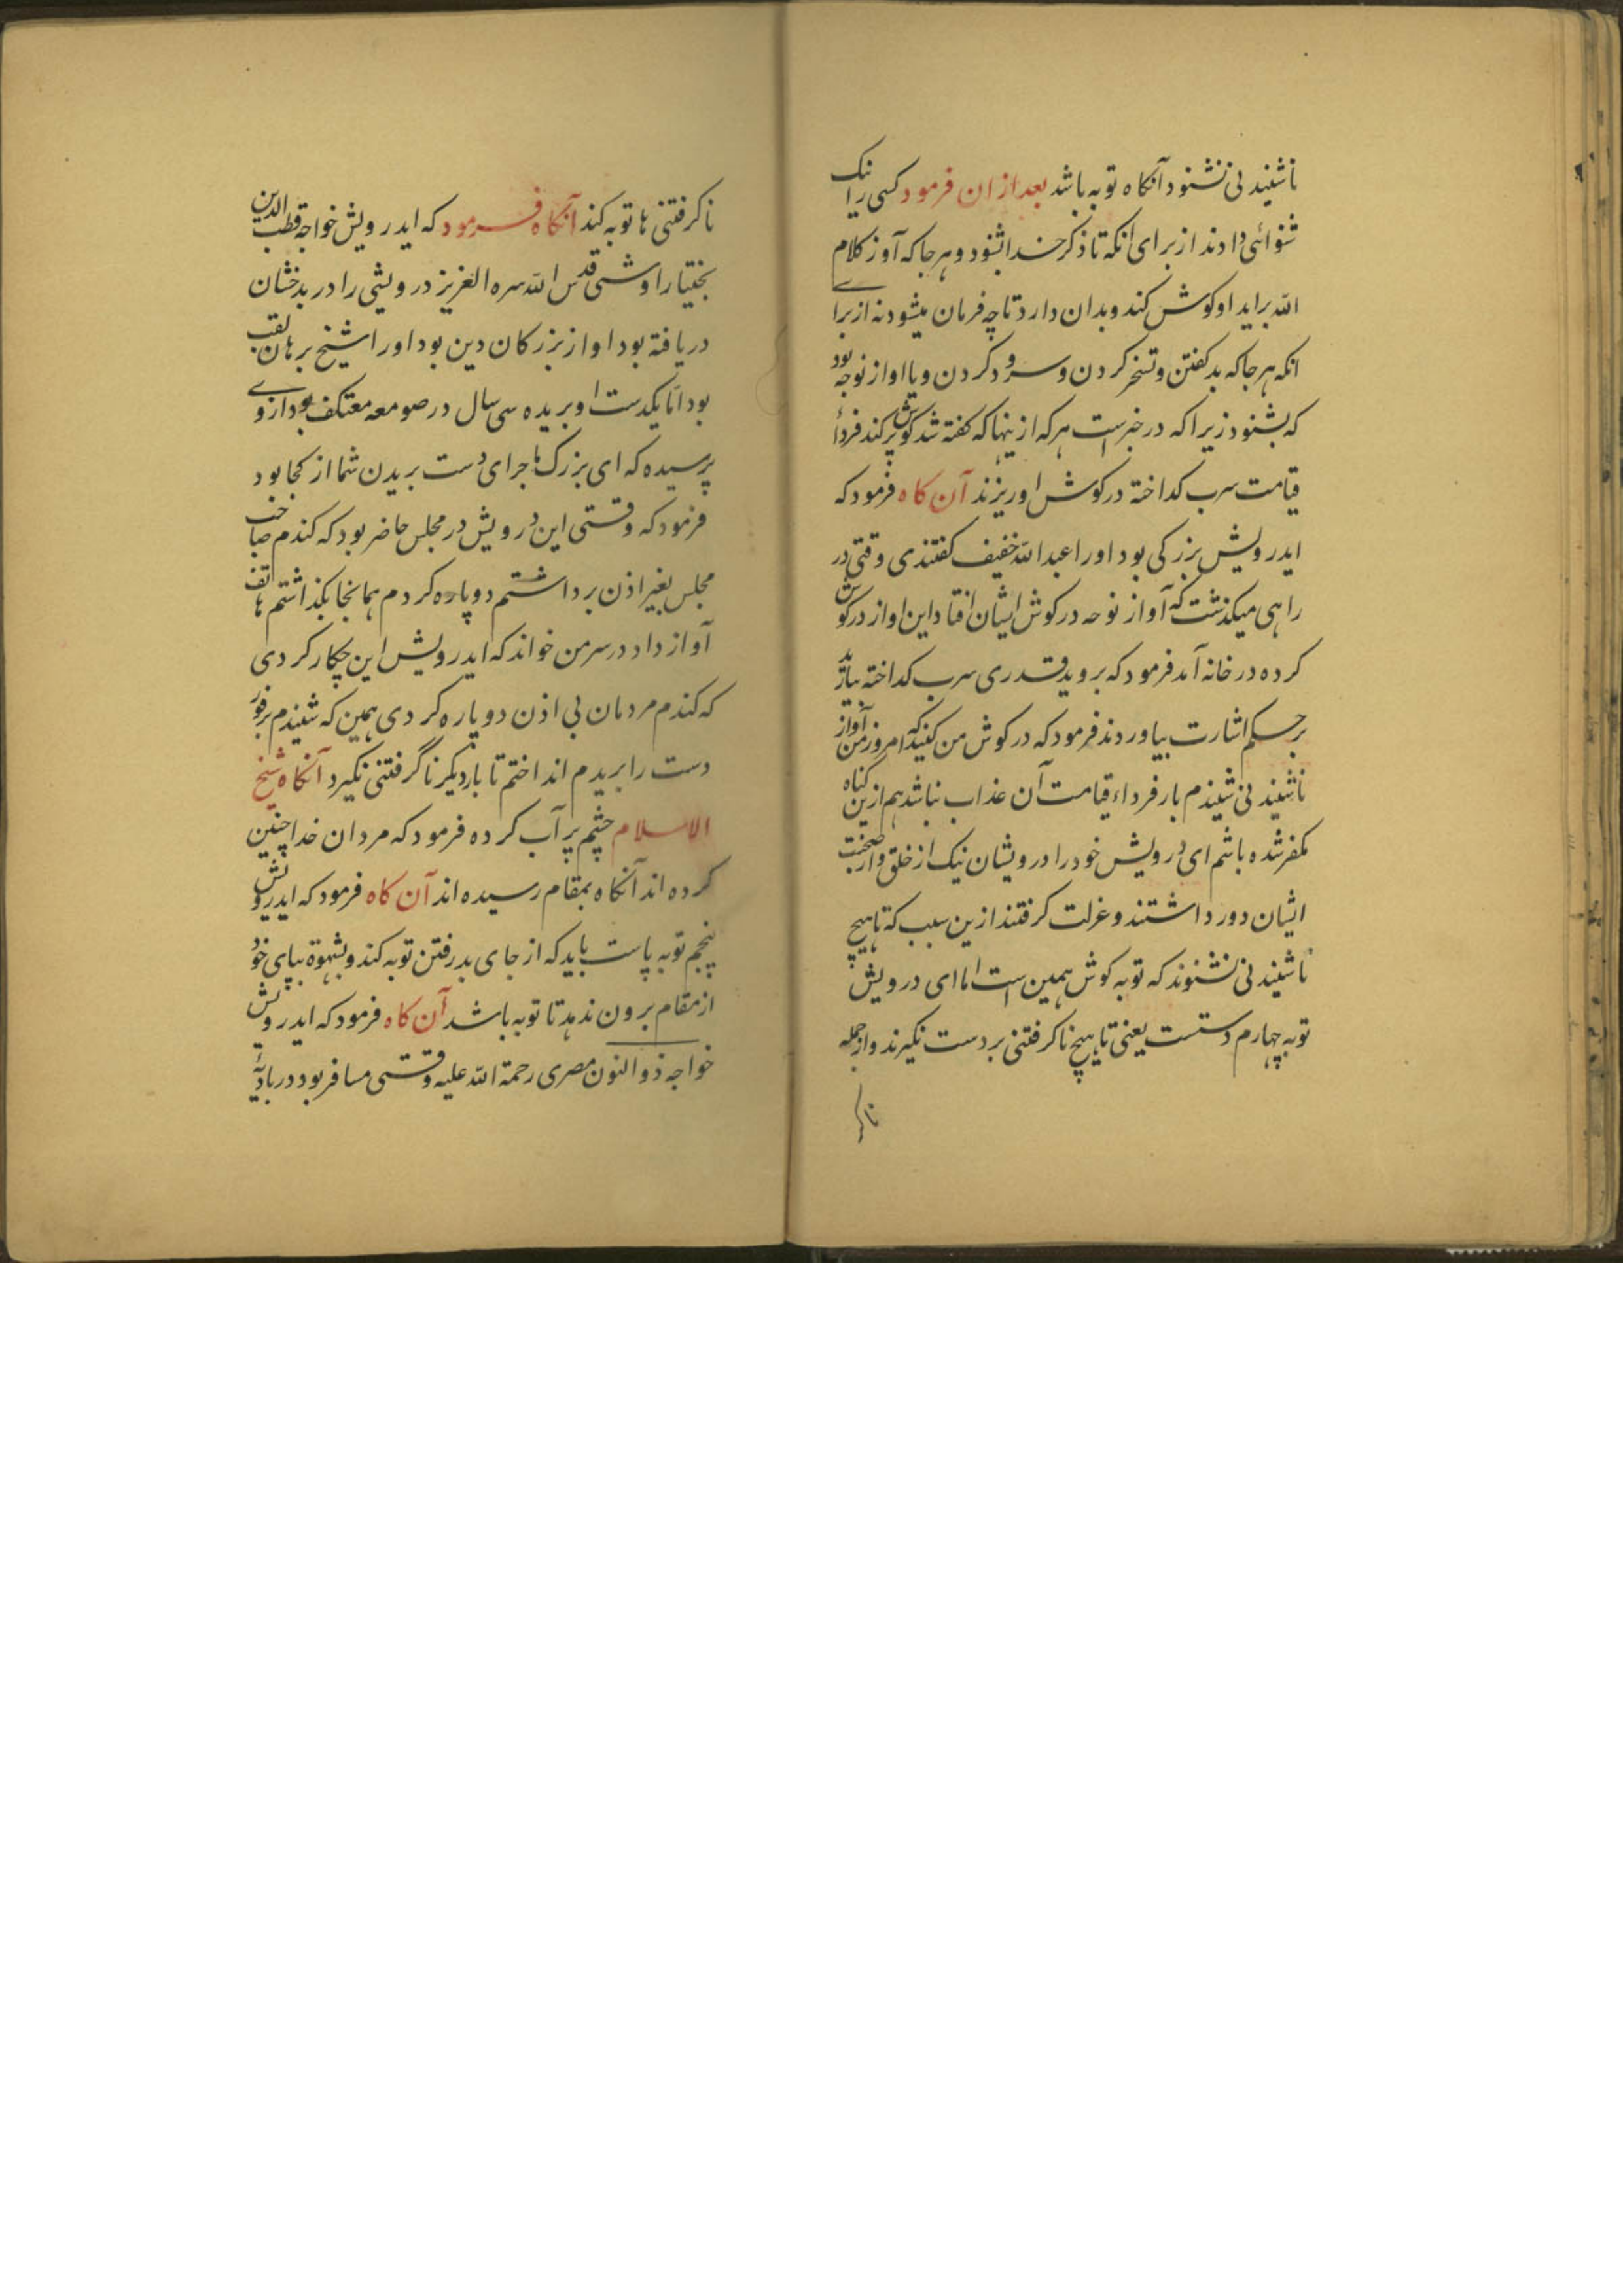 ناشنیدنی نشنود آنکاه توبه باشد بعد ازان فرمود کسی را نیک
شنوائی دادند از برای انکه تا ذکر خدا شنود و هر جا که آوز کلام
الله براید او کوش کند و بدان دارد تا چه فرمان میشود نه از برای
انکه هر جا که بد کفتن و تسخر کردن و سرود کردن و یا اواز نوحه بود
که بشنود زیرا که در خبرست هر که ازینها که کفته شد کوش پر کند فرداء
قیامت سرب کداخته در کوش او ریزند آن کاه فرمود که
ایدرویش بزرکی بود او را عبد الله خفیف کفتندی وقتی در
راهی میکذشت که آواز نوحه در کوش ایشان افتاد این اواز در کوش
کرده در خانه آمد فرمود که بروید قدری سرب کداخته بیارید
بر حکم اشارت بیاوردند فرمود که در کوش من کنید که امروز من آواز
ناشنیدنی شنیدم بار فرداء قیامت آن عذاب نباشد هم ازین کناه
مکفر شده باشم ای درویش خود را درویشان نیک از خلق و از صحبت
ایشان دور داشتند و عزلت کرفتند ازین سبب که تا هیچ
ناشنیدنی نشنوند که توبه کوش همین است اما ای درویش
توبه چهارم دستست یعنی تا هیچ ناکرفتنی بر دست نکیرند و از جمله
ناکر
ناکرفتنی ها توبه کند آنکاه فرمود که ایدرویش خواجه قطب الدین
بختیار اوشی قدس الله سره العزیز درویشی را در بدخشان
دریافته بود او از بزرکان دین بود او را شیخ برهان لقب
بود اما یکدست او بریده سی سال در صومعه معتکف بود ازوی
پرسیده که ای بزرک ماجرای دست بریدن شما از کجا بود
فرمود که وقتی این درویش در مجلس حاضر بود که کندم صاحب
مجلس بغیر اذن برداشتم دوپاره کردم همانجا بکذاشتم هاتف
آواز داد در سر من خواند که ایدرویش این چکار کردی
که کندم مردمان بی اذن دوپاره کردی همین که شنیدم بر فور
دست را بریدم انداختم تا بار دیکر ناگرفتنی نکیرد آنکاه شیخ
الاسلام چشم پر آب کرده فرمود که مردان خدا چنین
کرده اند آنکاه بمقام رسیده اند آن کاه فرمود که ایدرویش
پنجم توبه پاست باید که از جای بد رفتن توبه کند و بشهوة بپای خود
از مقام برون ندهد تا توبه باشد آن کاه فرمود که ایدرویش
خواجه ذو النون مصری رحمة الله علیه وقتی مسافر بود در بادیهٔ